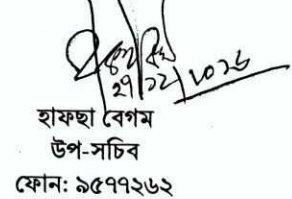 ২৭/১২/২০২৬
হাফছা বেগম
উপ-সচিব
ফোন: ৯৫৭৭২৬২